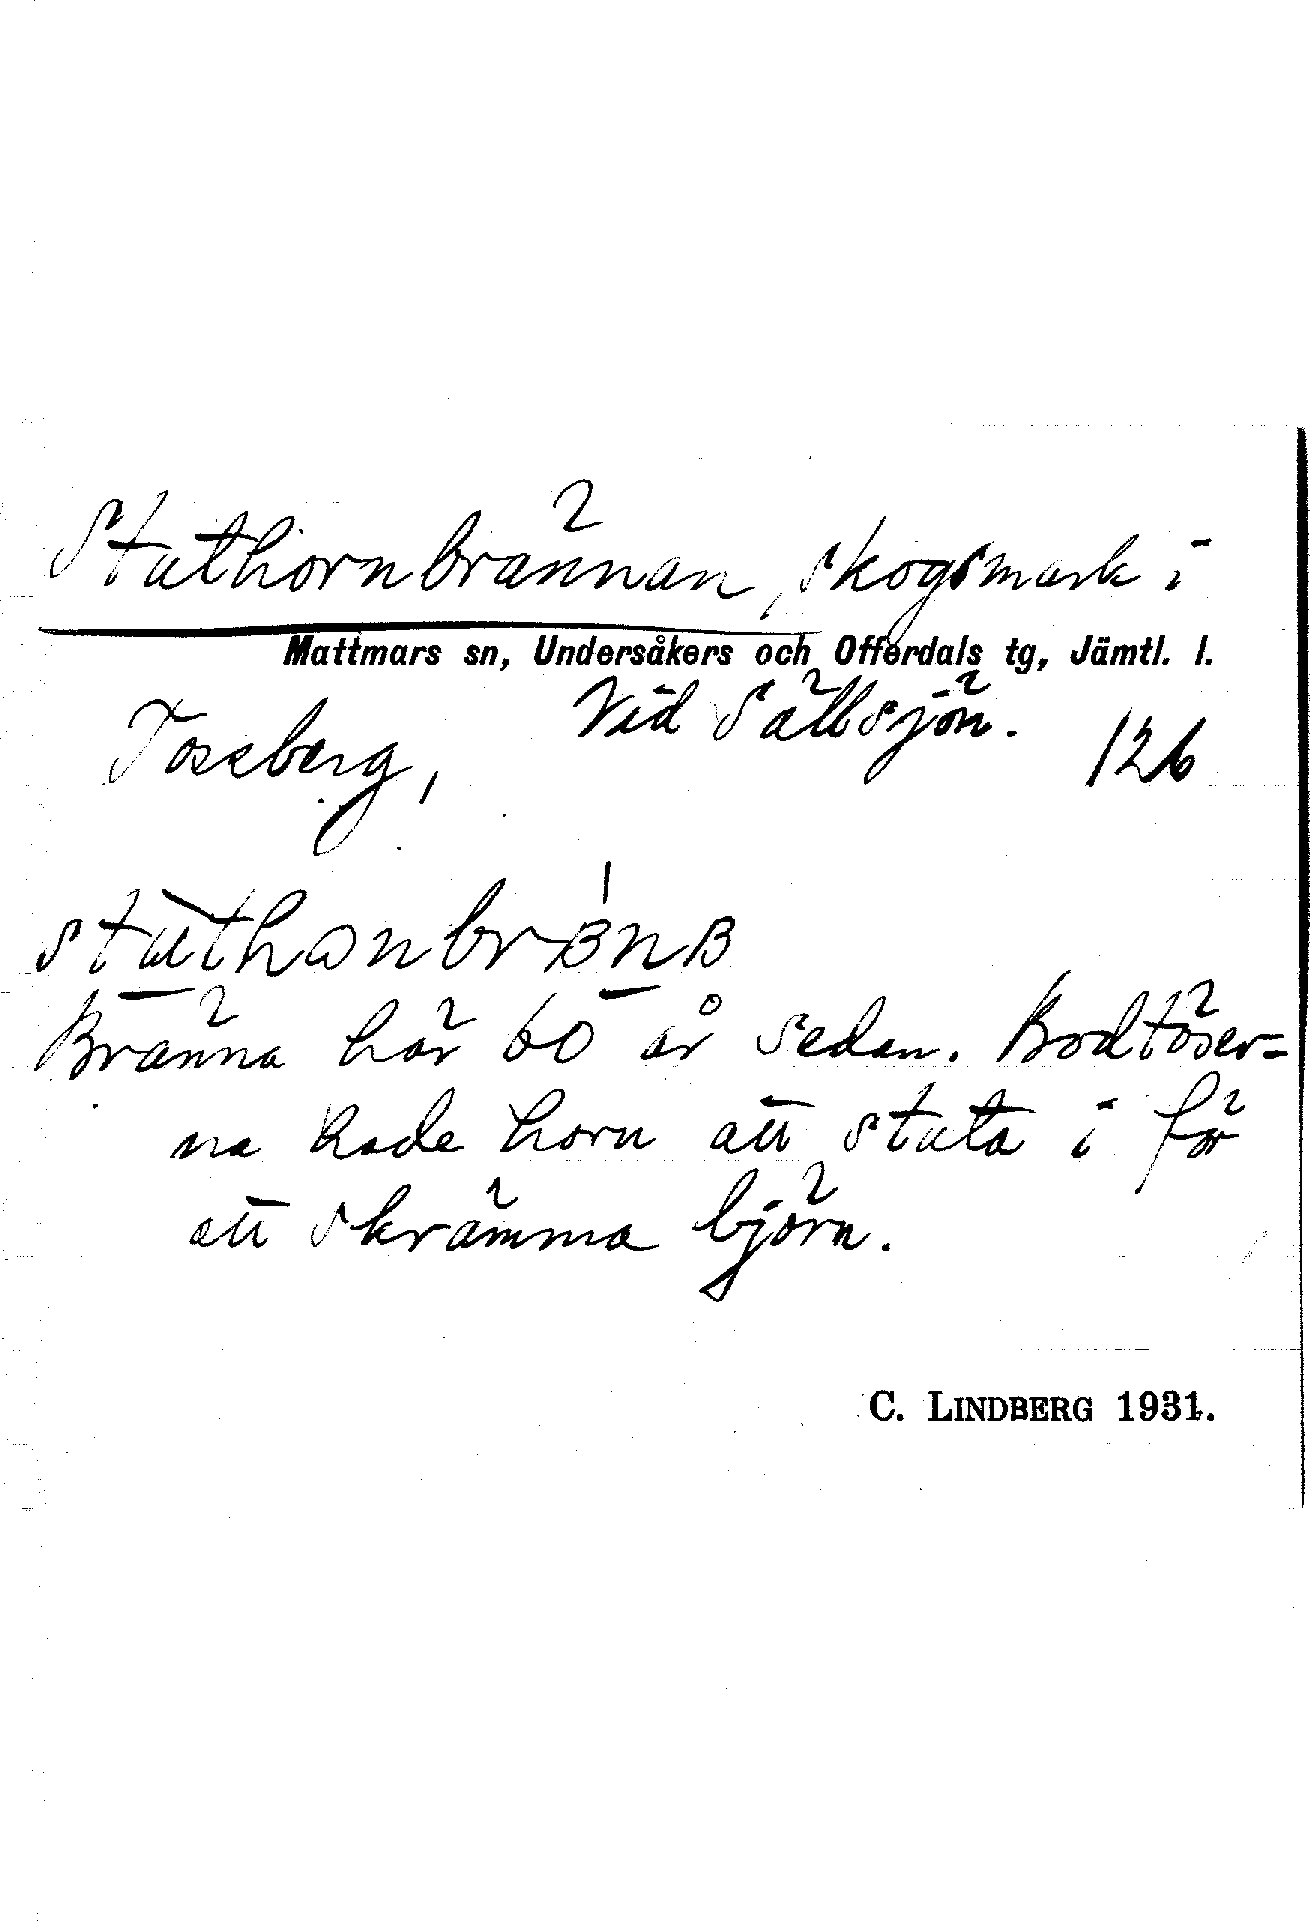 Stuthornbrännan, skogsmark i
Mattmars sn, Undersåkers och Offerdals tg, Jämtl. l.
Vid Sällsjön.
Tossberg, 126
Bränna här 60 år sedan. Bodtöser-
na hade horn att stuta i för
att skrämma björn.
C. LINDBERG 1931.